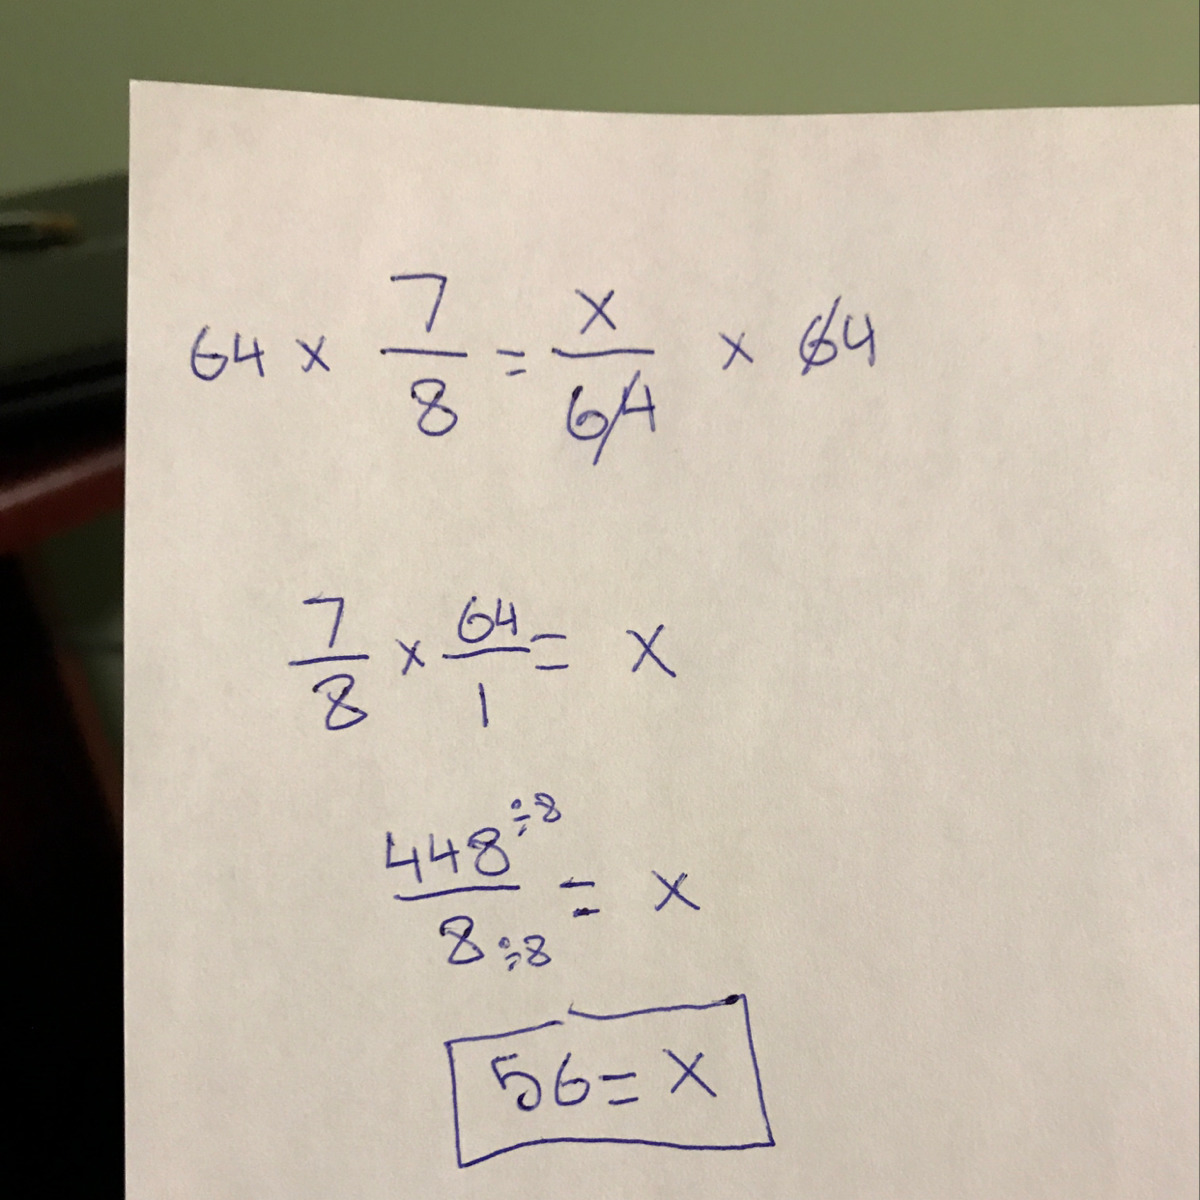 64 × 7/8 = x/64 × 64
7/8 × 64/1 = x
448÷8/8÷8 = x
56 = x